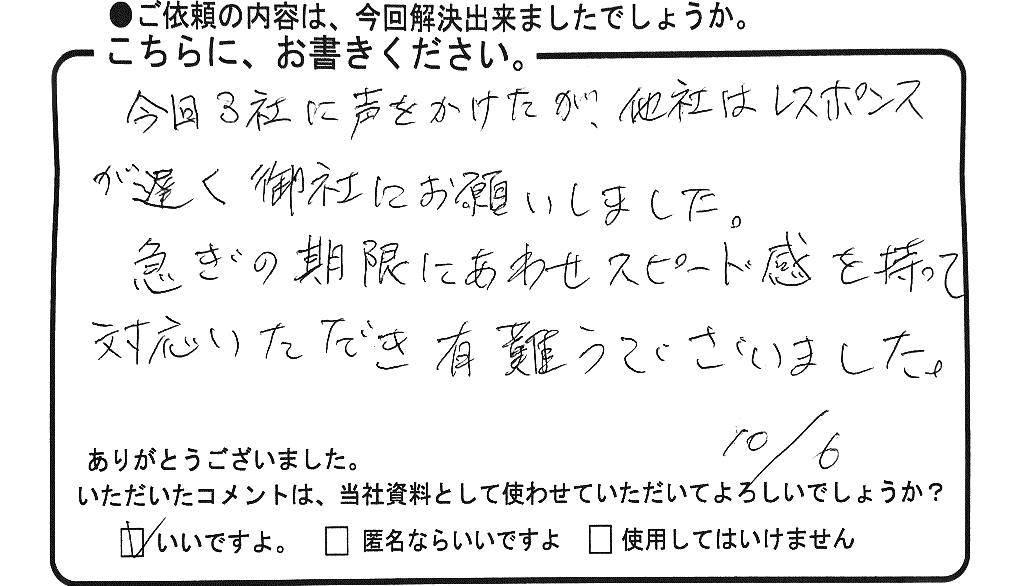 ●ご依頼の内容は、今回解決出来ましたでしょうか。
こちらに、お書きください。
今回3社に声をかけたが、他社はレスポンス
が遅く御社にお願いしました。
急ぎの期限にあわせスピード感を持って
対応いただき有難うございました。
10/6
ありがとうございました。
いただいたコメントは、当社資料として使わせていただいてよろしいでしょうか？
☑いいですよ。 □匿名ならいいですよ □使用してはいけません